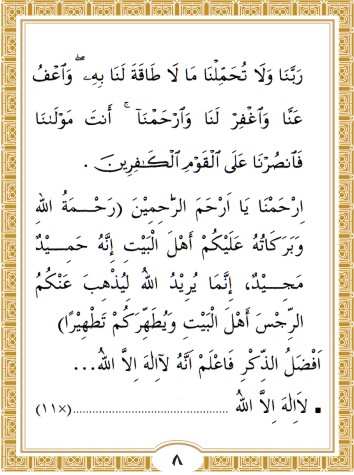 رَبَّنَا وَلَا تُحَمِّلْنَا مَا لَا طَاقَةَ لَنَا بِهِۦ ۖ وَٱعْفُ
عَنَّا وَٱغْفِرْ لَنَا وَٱرْحَمْنَآ ۚ أَنتَ مَوْلَىٰنَا
فَٱنصُرْنَا عَلَى ٱلْقَوْمِ ٱلْكَٰفِرِينَ .
اِرْحَمْنَا يَا اَرْحَمَ الرَّاحِمِيْنَ (رَحْمَةُ اللهِ
وَبَرَكَاتُهُ عَلَيْكُمْ اَهْلَ الْبَيْتِ اِنَّهُ حَمِيْدٌ
مَجِيْدٌ، اِنَّمَا يُرِيْدُ اللهُ لِيُذْهِبَ عَنْكُمُ
الرِّجْسَ اَهْلَ الْبَيْتِ وَيُطَهِّرَكُمْ تَطْهِيْرًا)
اَفْضَلُ الذِّكْرِ فَاعْلَمْ اَنَّهُ لَآاِلٰهَ اِلَّا اللهُ...
▪ لَااِلٰهَ اِلَّا اللهُ ........................................ (×١١)
٨